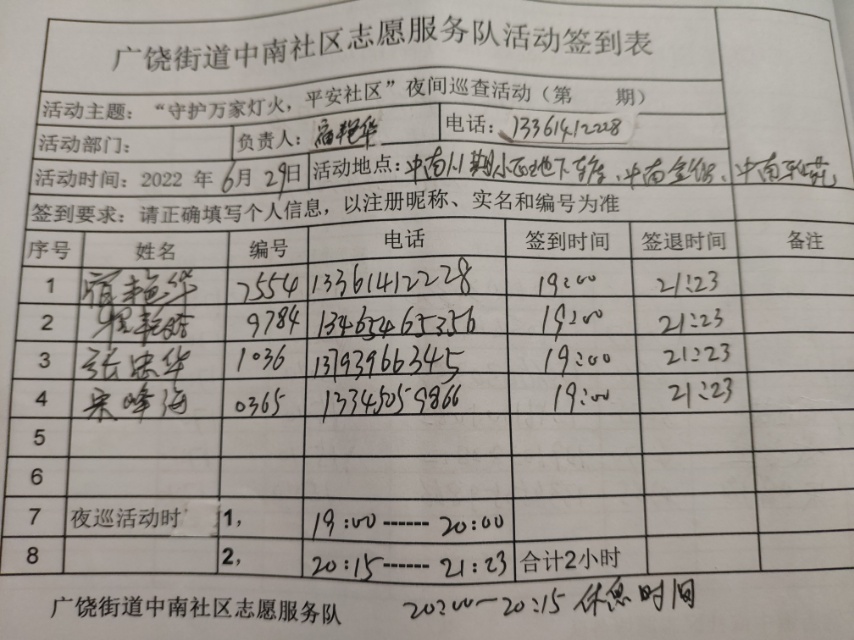 广饶街道中南社区志愿服务队活动签到表
活动主题：“守护万家灯火，平安社区”夜间巡查活动（第 期）
活动部门： 负责人：宿艳华 电话：13361412228
活动时间：2022 年 6月 29日 活动地点：中南1.1期小区地下车库、中南
签到要求：请正确填写个人信息，以注册昵称、实名和编号为准
序号 姓名 编号 电话 签到时间 签退时间 备注
1 宿艳华 7554 13361412228 19:00 21:23
2 9784 13465465356 19:00 21:23
3 张忠华 1036 13793966345 19:00 21:23
4 宋峰海 0365 13345059866 19:00 21:23
5
6
7 夜巡活动时 1, 19:00 ------ 20:00
8 2, 20:15 ------ 21:23 合计2小时
广饶街道中南社区志愿服务队 20:00—20:15 休息时间